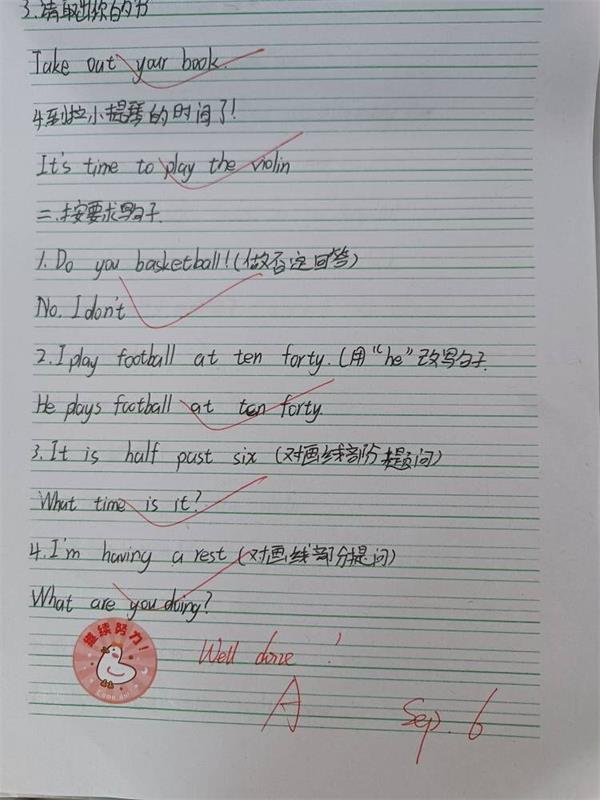 3.请取出你的书
Take out your book.
4.到拉小提琴的时间了!
It's time to play the violin
二.按要求写句子.
1. Do you basketball!(做否定回答)
No. I don't
2. I play football at ten forty. (用"he"改写句子.
He plays football at ten forty.
3. It is half past six (对画线部分提问)
What time is it?
4. I'm having a rest (对画线部分提问)
What are you doing?
继续努力!
Well done!
A
Sep. 6